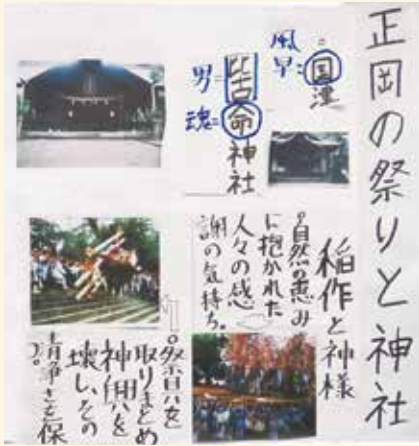 正岡の祭りと神社
風早=
国津
男=
比古命神社
魂=
稲作と神様
○自然の恵み
に抱かれた
人々の感
謝の気持ち。
取りまとめ
神輿を
壊し、その
清浄さを保
つ。